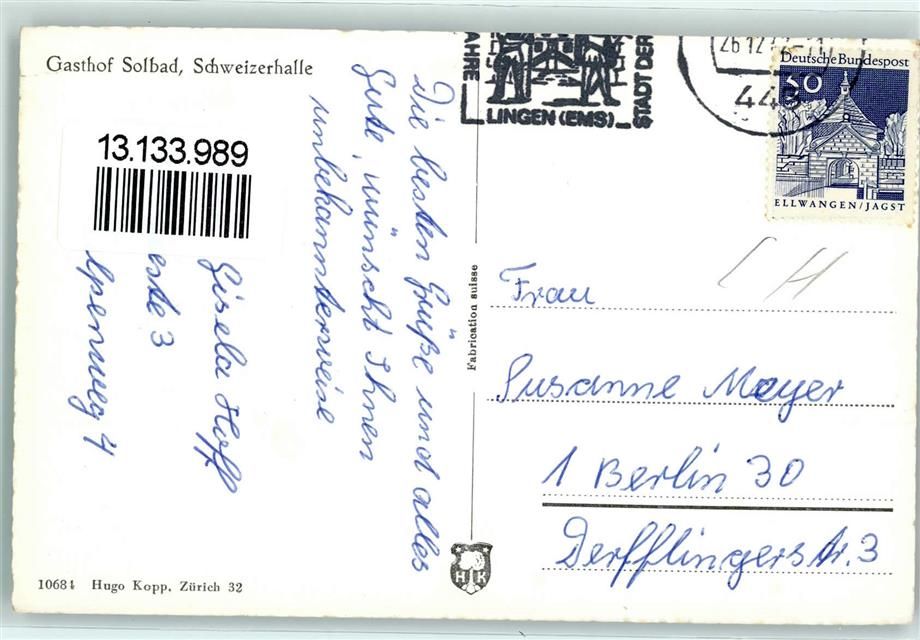 Gasthof Solbad, Schweizerhalle
13.133.989
Die besten Grüße und alles
Gute, wünscht Ihnen
unbekannterweise
Gisela Hoff
este 3
lpenweg 4
10684 Hugo Kopp, Zürich 32
Fabrication suisse
H K
LINGEN (EMS)
STADT DER
JAHRE
26.12.
Deutsche Bundespost
50
ELLWANGEN/JAGST
Frau
Susanne Meyer
1 Berlin 30
Derfflingerstr. 3